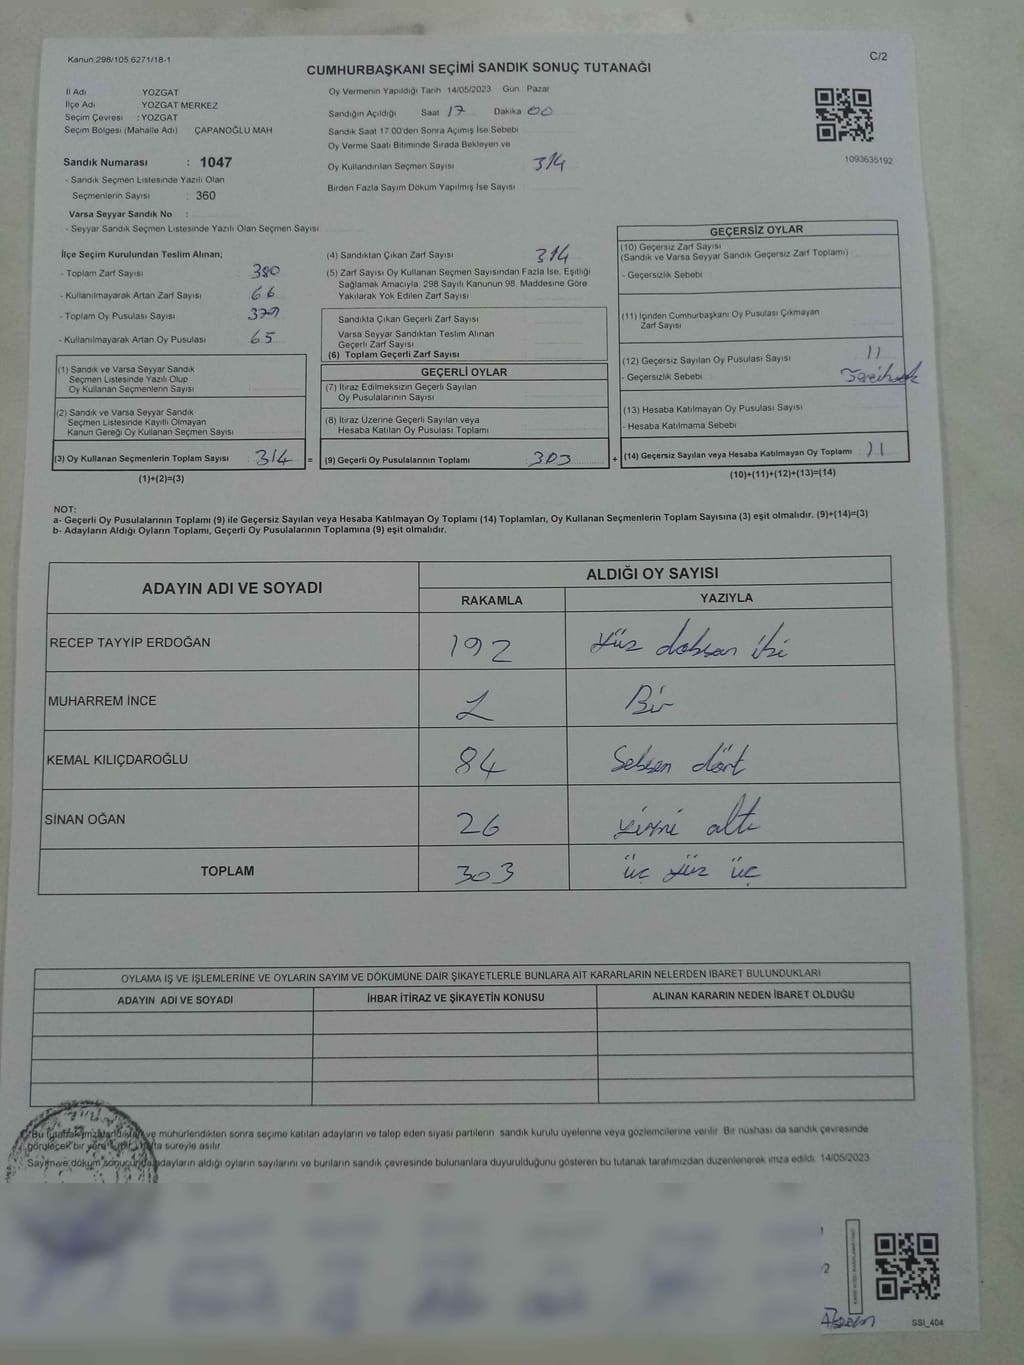 Kanun:298/105,6271/18-1
C/2
CUMHURBAŞKANI SEÇİMİ SANDIK SONUÇ TUTANAĞI
İl Adı YOZGAT
İlçe Adı YOZGAT MERKEZ
Seçim Çevresi : YOZGAT
Seçim Bölgesi (Mahalle Adı) ÇAPANOĞLU MAH
Sandık Numarası : 1047
- Sandık Seçmen Listesinde Yazılı Olan
Seçmenlerin Sayısı : 360
Varsa Seyyar Sandık No :
- Seyyar Sandık Seçmen Listesinde Yazılı Olan Seçmen Sayısı
Oy Vermenin Yapıldığı Tarih 14/05/2023 Gün Pazar
Sandığın Açıldığı Saat 17 Dakika 00
Sandık Saat 17:00'den Sonra Açımış İse Sebebi
Oy Verme Saati Bitiminde Sırada Bekleyen ve
Oy Kullandırılan Seçmen Sayısı 314
Birden Fazla Sayım Döküm Yapılmış İse Sayısı
1093635192
İlçe Seçim Kurulundan Teslim Alınan;
- Toplam Zarf Sayısı 380
- Kullanılmayarak Artan Zarf Sayısı 66
- Toplam Oy Pusulası Sayısı 379
- Kullanılmayarak Artan Oy Pusulası 65
(1) Sandık ve Varsa Seyyar Sandık
Seçmen Listesinde Yazılı Olup
Oy Kullanan Seçmenlerin Sayısı
(2) Sandık ve Varsa Seyyar Sandık
Seçmen Listesinde Kayıtlı Olmayan
Kanun Gereği Oy Kullanan Seçmen Sayısı
(3) Oy Kullanan Seçmenlerin Toplam Sayısı 314 =
(1)+(2)=(3)
(4) Sandıktan Çıkan Zarf Sayısı 314
(5) Zarf Sayısı Oy Kullanan Seçmen Sayısından Fazla İse, Eşitliği
Sağlamak Amacıyla, 298 Sayılı Kanunun 98. Maddesine Göre
Yakılarak Yok Edilen Zarf Sayısı
Sandıkla Çıkan Geçerli Zarf Sayısı
Varsa Seyyar Sandıktan Teslim Alınan
Geçerli Zarf Sayısı
(6) Toplam Geçerli Zarf Sayısı
GEÇERLİ OYLAR
(7) İtiraz Edilmeksizin Geçerli Sayılan
Oy Pusulalarının Sayısı
(8) İtiraz Üzerine Geçerli Sayılan veya
Hesaba Katılan Oy Pusulası Toplamı
(9) Geçerli Oy Pusulalarının Toplamı 303 +
GEÇERSİZ OYLAR
(10) Geçersiz Zarf Sayısı
(Sandık ve Varsa Seyyar Sandık Geçersiz Zarf Toplamı)
- Geçersizlik Sebebi
(11) İçinden Cumhurbaşkanı Oy Pusulası Çıkmayan
Zarf Sayısı
(12) Geçersiz Sayılan Oy Pusulası Sayısı 11
- Geçersizlik Sebebi :
(13) Hesaba Katılmayan Oy Pusulası Sayısı
- Hesaba Katılmama Sebebi
(14) Geçersiz Sayılan veya Hesaba Katılmayan Oy Toplamı : 11
(10)+(11)+(12)+(13)=(14)
NOT:
a- Geçerli Oy Pusulalarının Toplamı (9) ile Geçersiz Sayılan veya Hesaba Katılmayan Oy Toplamı (14) Toplamları, Oy Kullanan Seçmenlerin Toplam Sayısına (3) eşit olmalıdır. (9)+(14)=(3)
b- Adayların Aldığı Oyların Toplamı, Geçerli Oy Pusulalarının Toplamına (9) eşit olmalıdır.
ADAYIN ADI VE SOYADI ALDIĞI OY SAYISI
RAKAMLA YAZIYLA
RECEP TAYYİP ERDOĞAN 192 Yüz doksan iki
MUHARREM İNCE 1 Bir
KEMAL KILIÇDAROĞLU 84 Seksen dört
SİNAN OĞAN 26 yirmi altı
TOPLAM 303 üç yüz üç
OYLAMA İŞ VE İŞLEMLERİNE VE OYLARIN SAYIM VE DÖKÜMÜNE DAİR ŞİKAYETLERLE BUNLARA AİT KARARLARIN NELERDEN İBARET BULUNDUKLARI
ADAYIN ADI VE SOYADI İHBAR İTİRAZ VE ŞİKAYETİN KONUSU ALINAN KARARIN NEDEN İBARET OLDUĞU
Bu ve mühürlendikten sonra seçime katılan adayların ve talep eden siyasi partilerin sandık kurulu üyelerine veya gözlemcilerine verilir. Bir nüshası da sandık çevresinde
görülecek bir yere süreyle asılır.
Sayım ve döküm sonucunda adayların aldığı oyların sayılarını ve bunların sandık çevresinde bulunanlara duyurulduğunu gösteren bu tutanak tarafımızdan düzenlenerek imza edildi. 14/05/2023
SSI_404